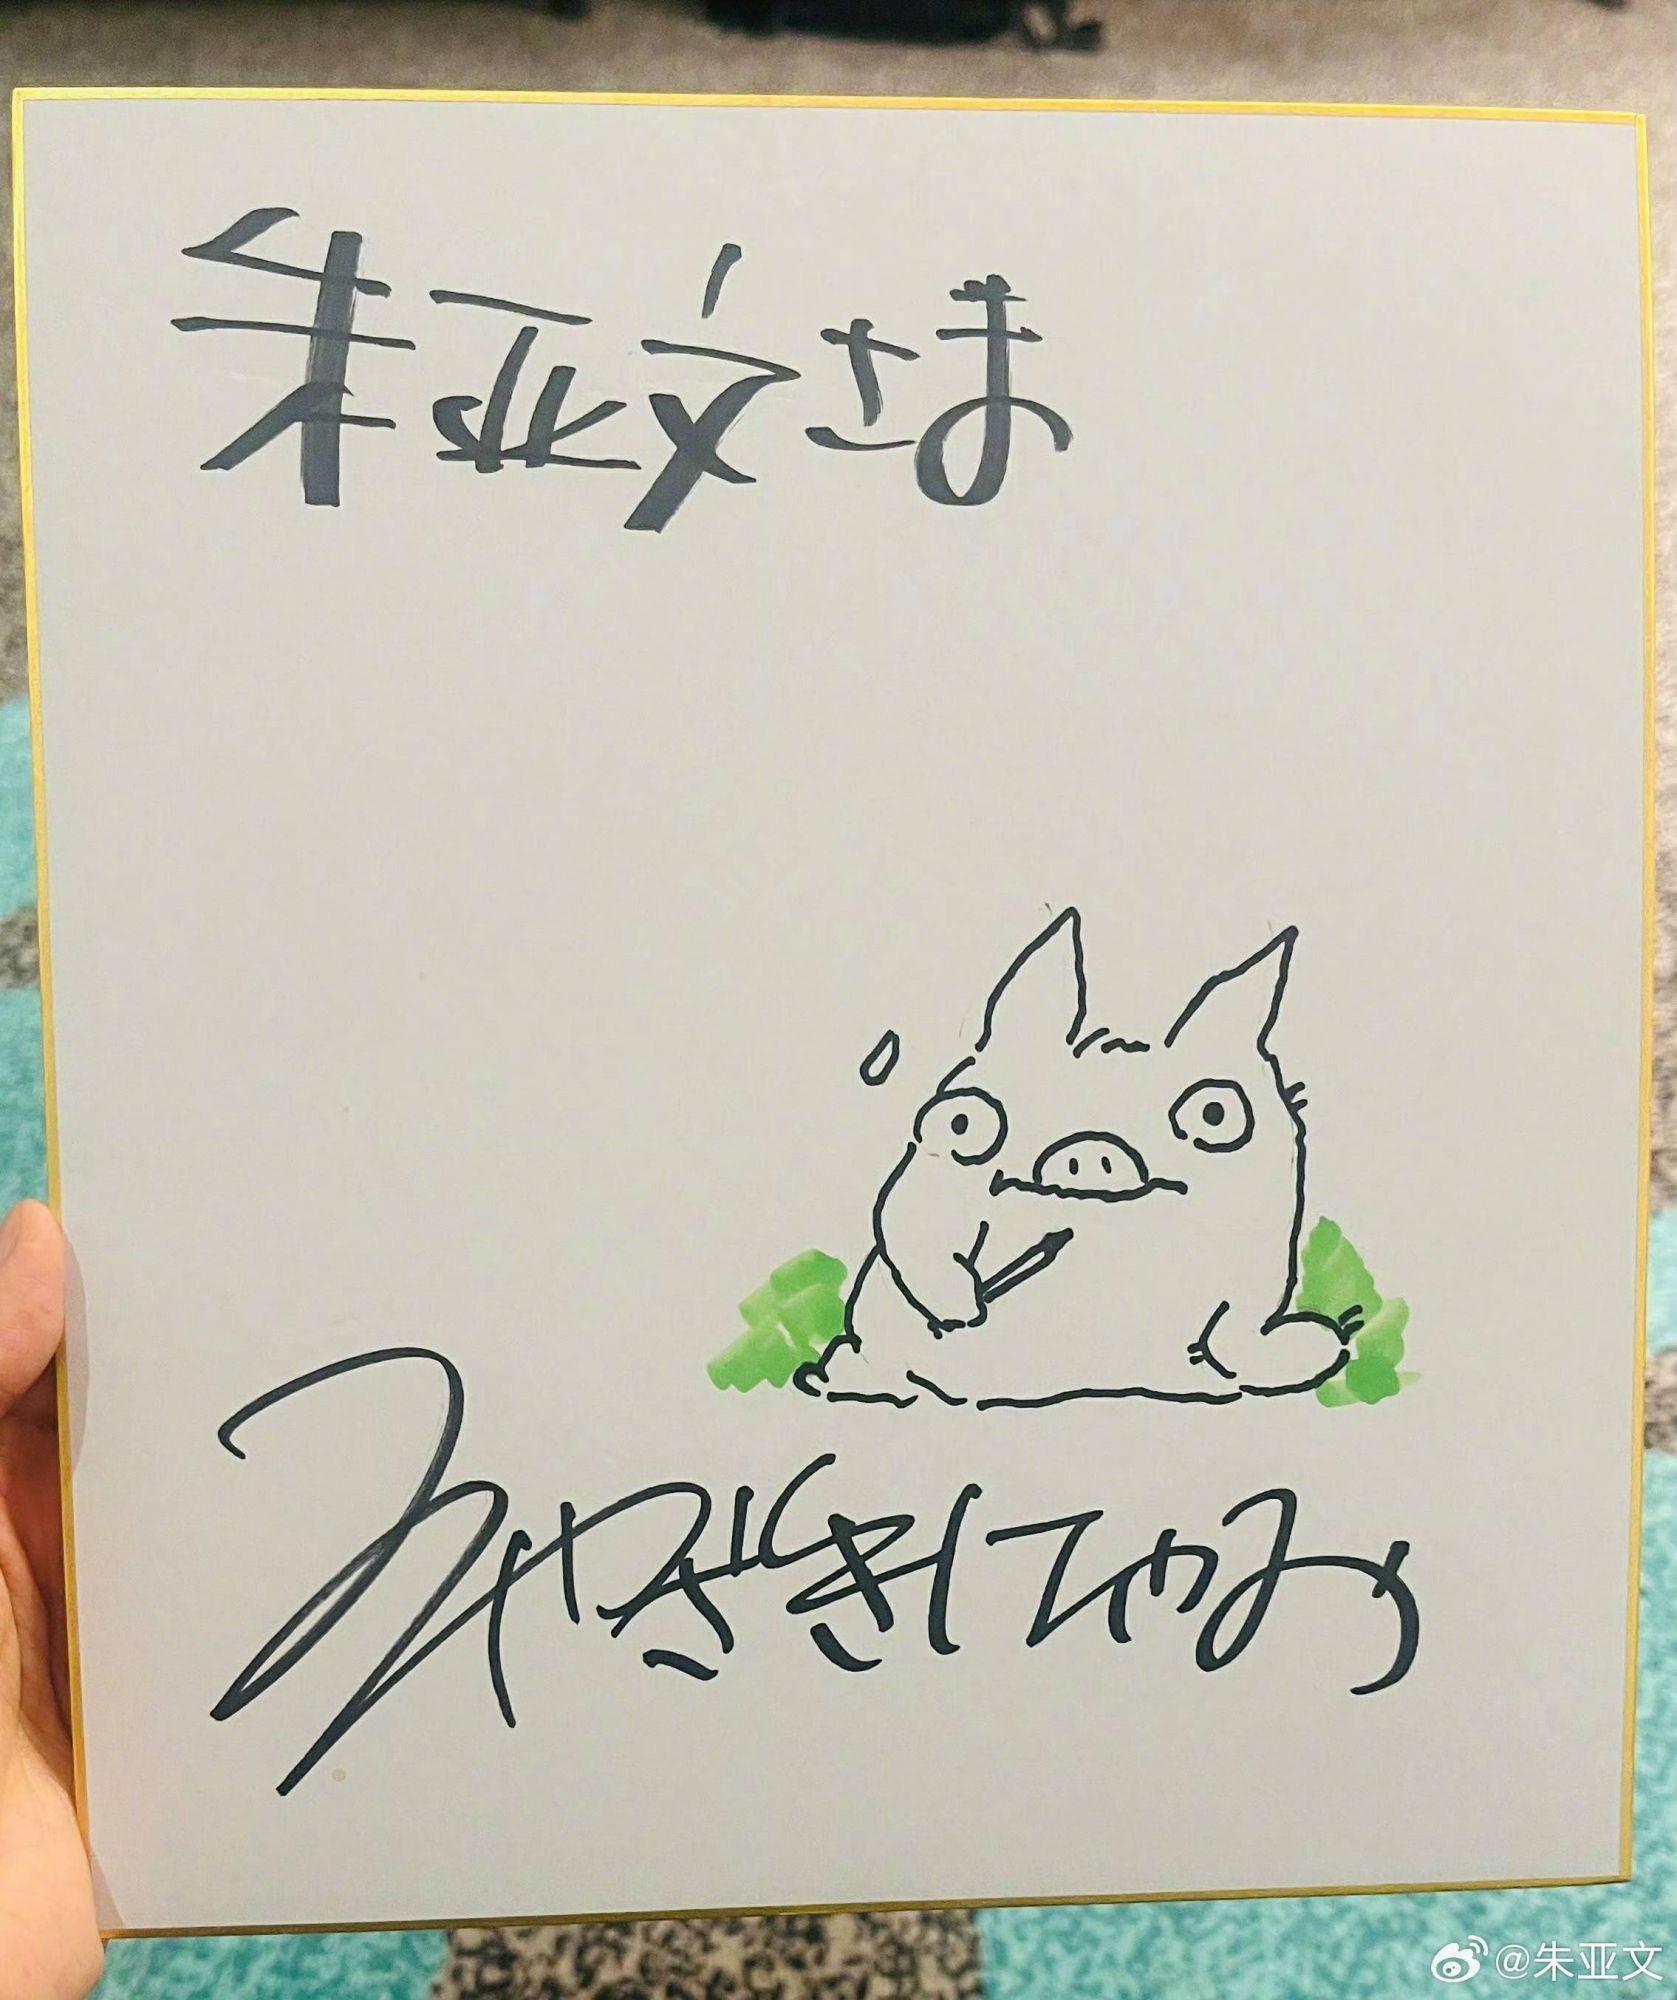 朱亚文さま
みやざきはやお
@朱亚文